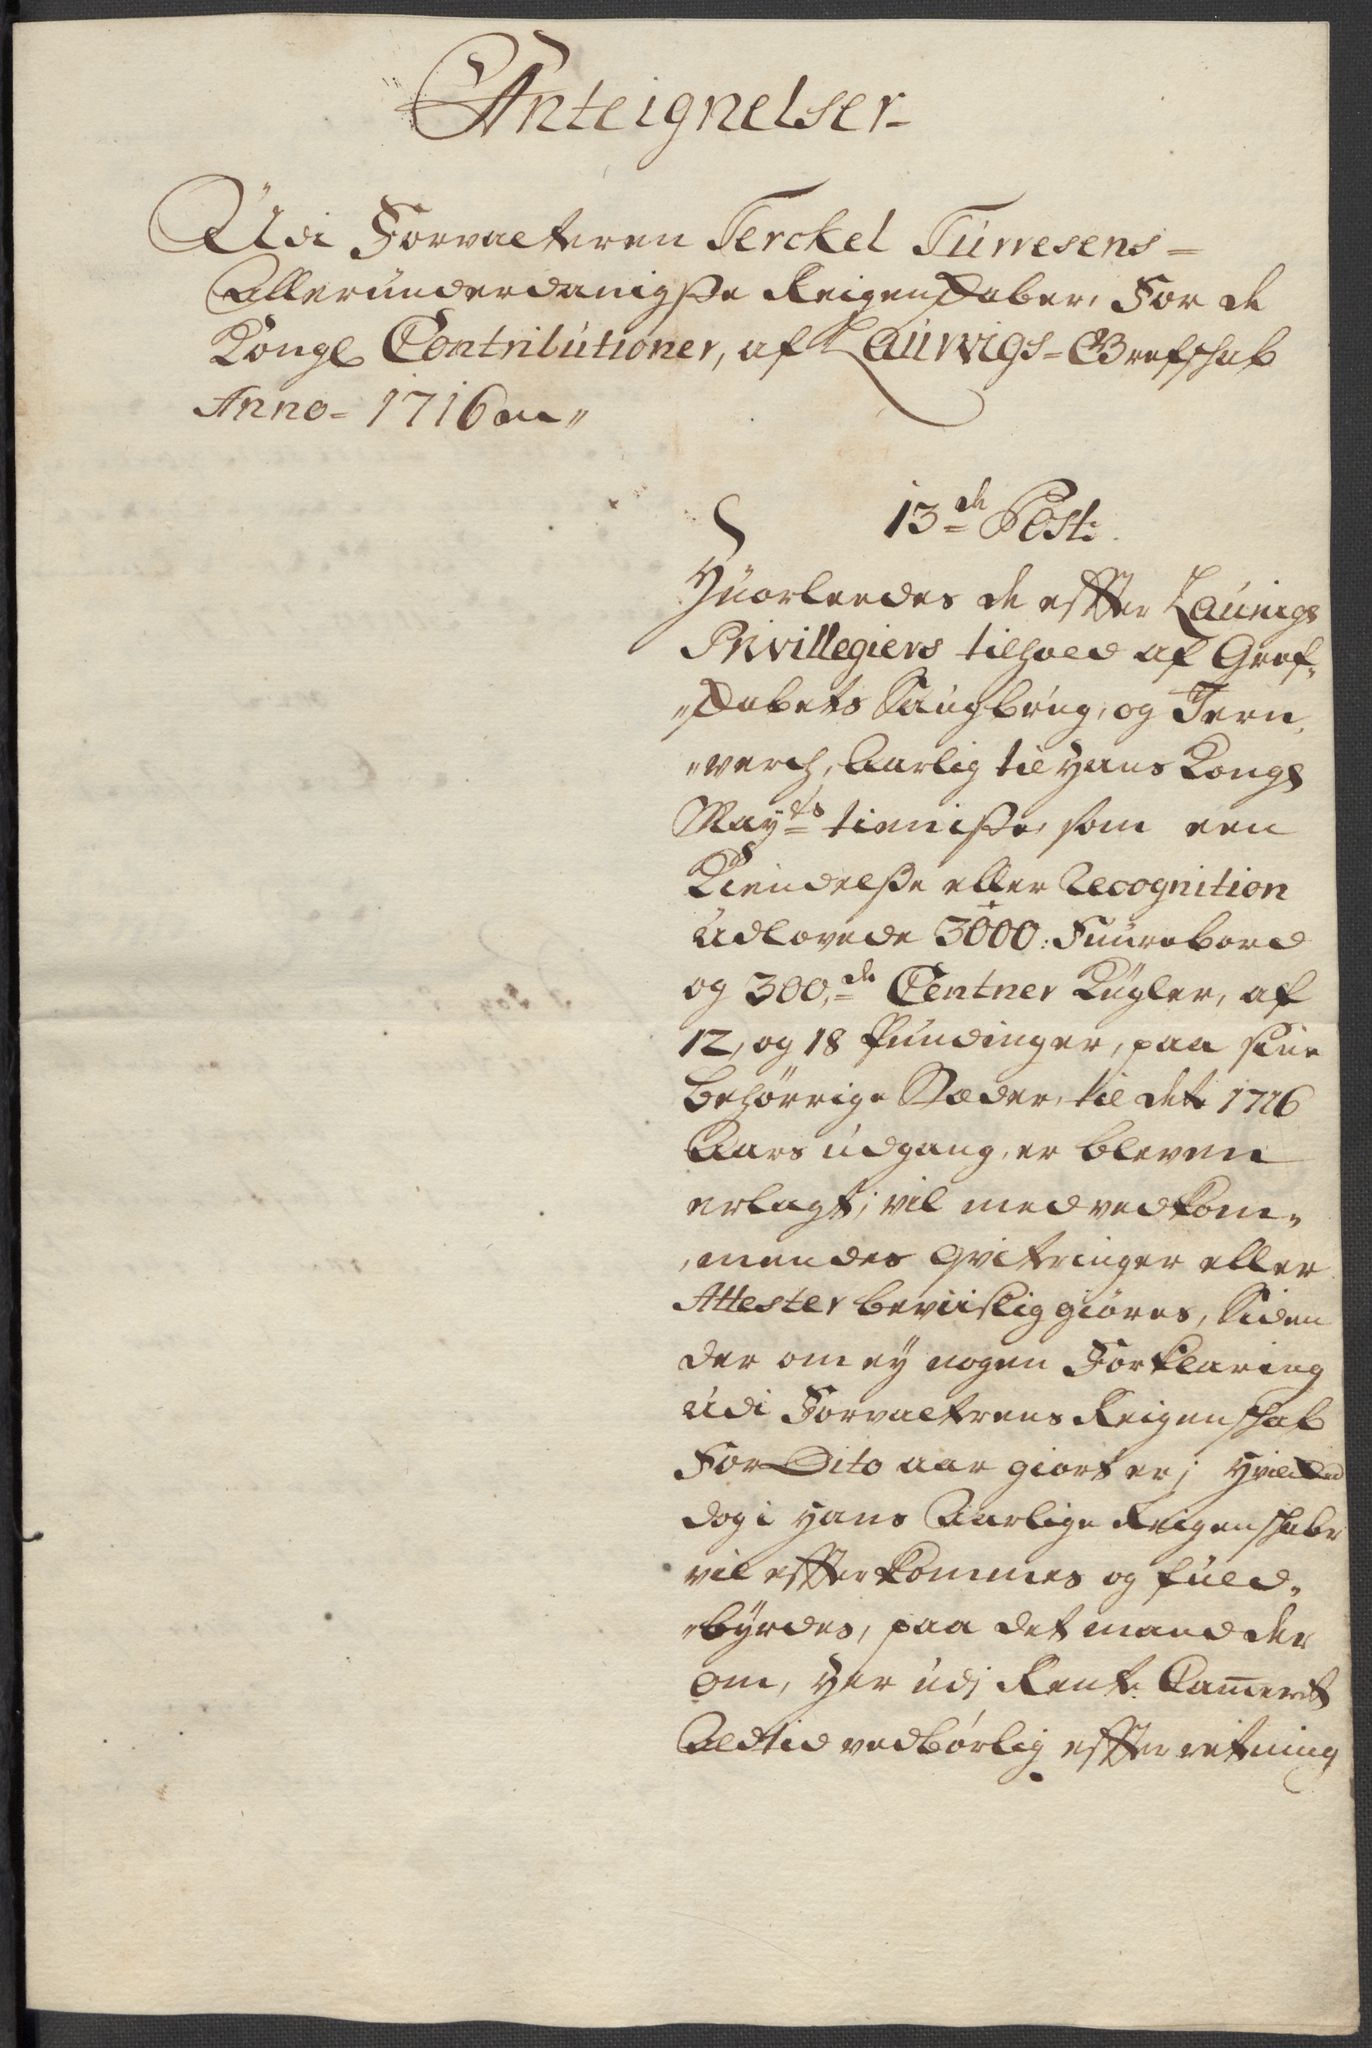 Anteignelser
Udi Forvalteren Terckel Turresens
Allerunderdanigste Reigenskaber, For de
Kongl Contributioner, af Laurvigs-Grefschab
Anno 1716
13de Post:
Huorleedes de effter Laurvigs
Privillegiers tilhold af Gref-
skabets Saugbrug, og Jern
werch, Aarlig til Hans Kongl
Mayts tieniste, som een
Kiendelsse eller Recognition
udlovede 3000: Fuurebord
og 300de Centner Kugler, af
12, og 18 Pundinger, paa sine
behörrige Stæder, til det 1716
Aars udgang, er bleven
erlagt; vil med vedkom-
mendes qvitringer eller
Attester beviislig giøres, Siden
der om ey nogen Forklaring
udi Forvaltrens Reigenschab
For Dito aar giort er; Hvilcked
dog i hans Aarlige Reigenschaber
vil effterkommes og fuld-
byrdes, paa det mand der
om, her udj Rente Cammeret
Altid vedbörlig effterretning